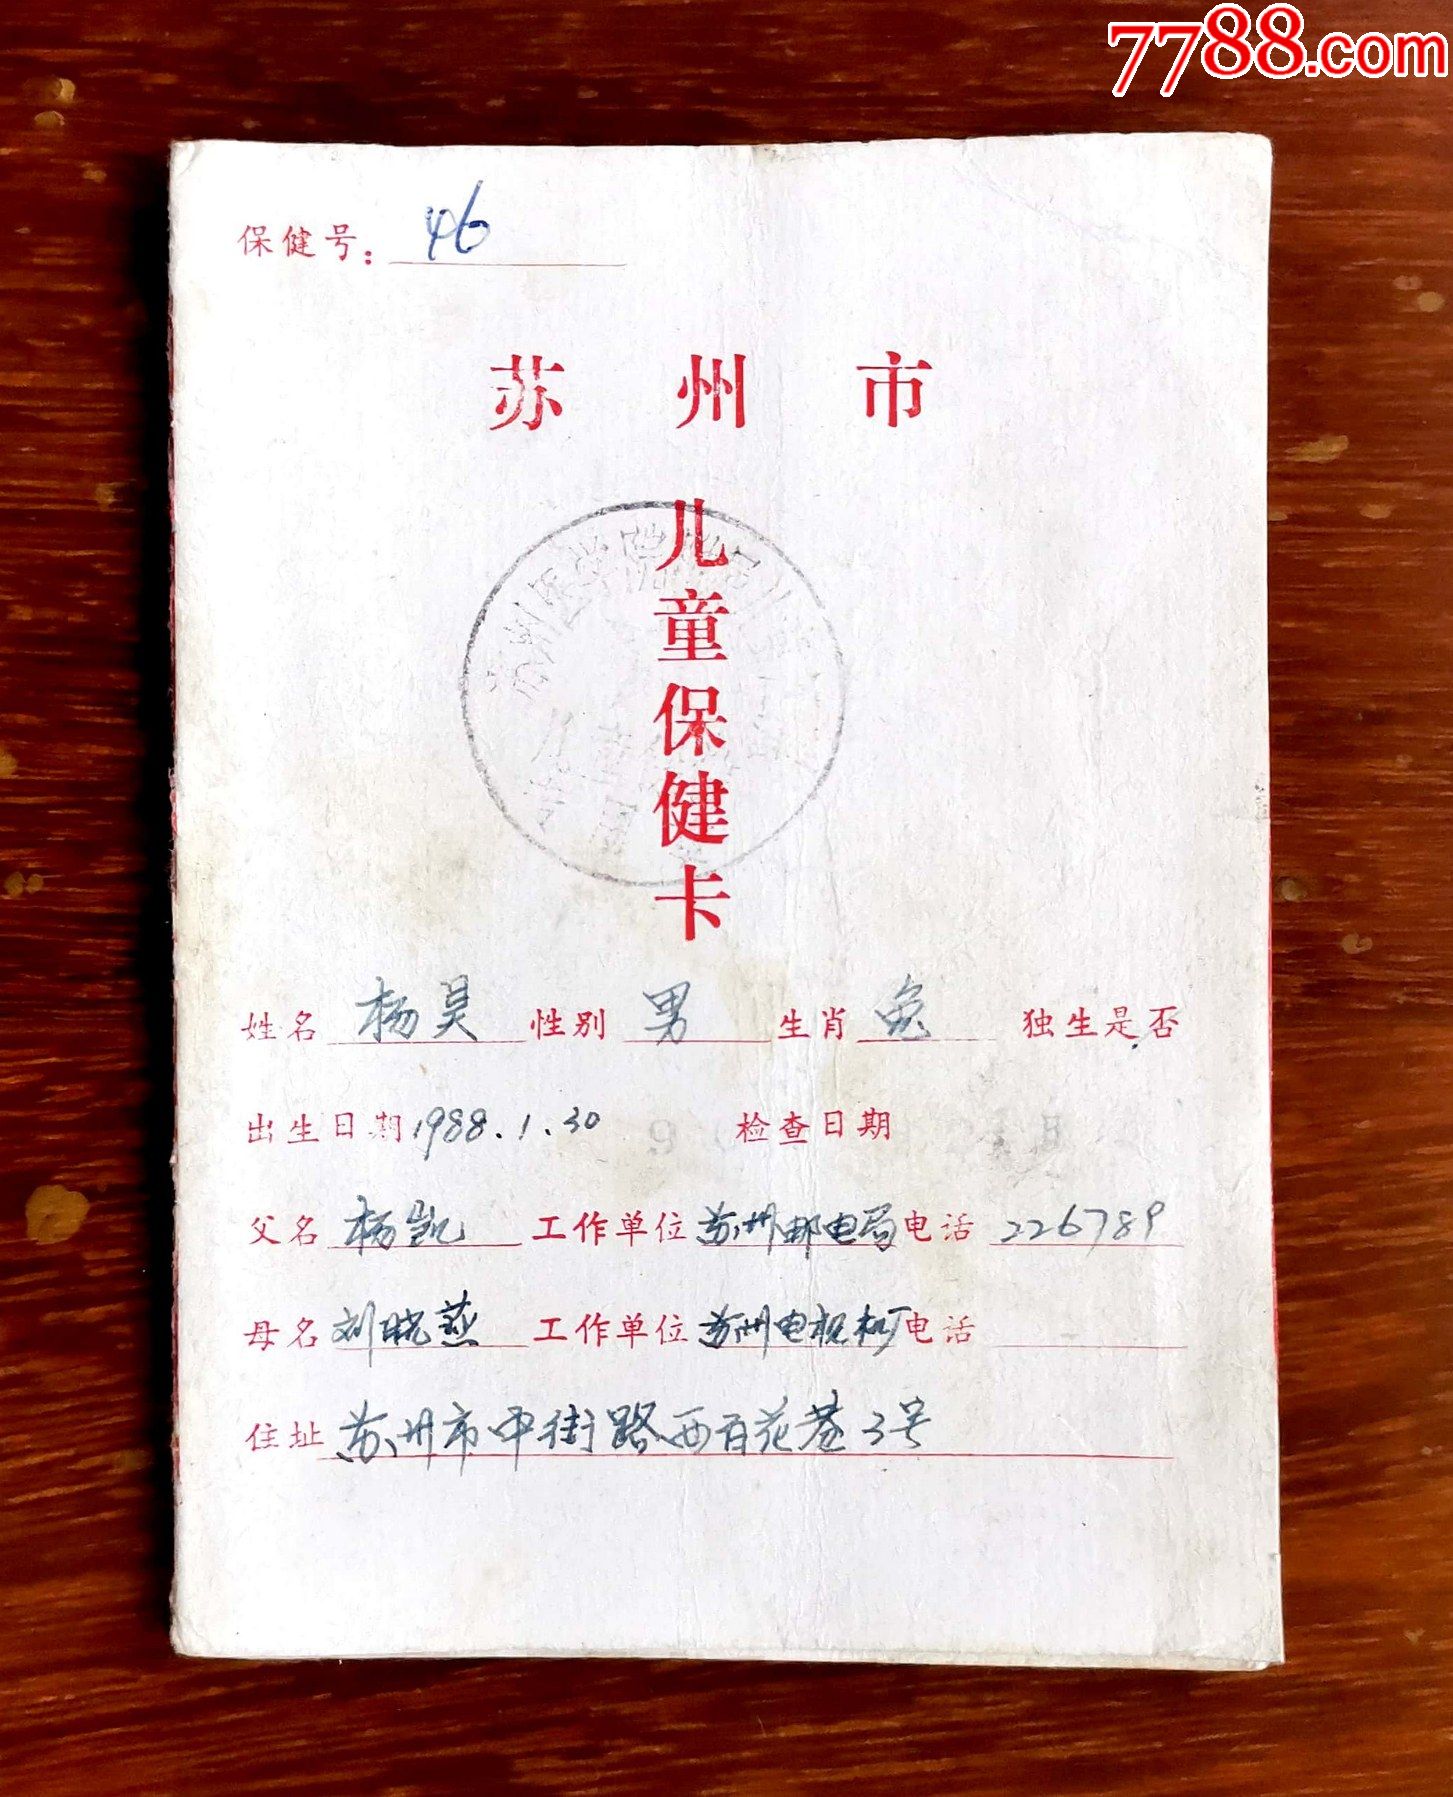 7788.com
保健号：46
苏州市
儿童保健卡
苏州医学院附属儿童医院
姓名 杨昊 性别 男 生肖 兔 独生是否
出生日期 1988.1.30 检查日期
父名 杨凯 工作单位 苏州邮电局 电话 226789
母名 刘晓燕 工作单位 苏州电视机厂 电话
住址 苏州市中街路西百花巷3号